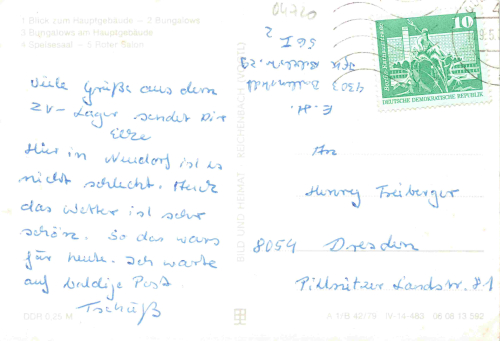 1 Blick zum Hauptgebäude – 2 Bungalows
3 Bungalows am Hauptgebäude
4 Speisesaal – 5 Roter Salon
Viele Grüße aus dem
ZV-Lager sendet Dir
Hier in Neudorf ist es
nicht schlecht. Auch
das Wetter ist sehr
schön. So das wars
für heute. Ich warte
auf baldige Post.
Tschüß
DDR 0,25 M
BILD UND HEIMAT REICHENBACH (VOGTL)
04720
E. H.
4303
56 I
2
10
DEUTSCHE DEMOKRATISCHE REPUBLIK
An
Henry Freiberger
8054 Dresden
Pillnitzer Landstr. 81
A 1/B 42/79 IV-14-483 06 08 13 592